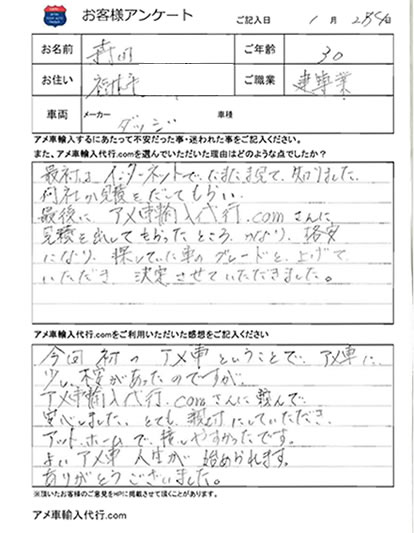 お客様アンケート
ご記入日 1 月 日
お名前
ご年齢 30
お住い
ご職業 建築業
車両 メーカー ダッジ 車種
アメ車輸入するにあたって不安だった事・迷われた事をご記入ください。
また、アメ車輸入代行.comを選んでいただいた理由はどのような点でしたか?
最初は インターネットで、たまたま見て、知りました。
何社か見積をだしてもらい、
最後に アメ車輸入代行.comさんに
見積を出してもらったところ、かなり、格安
になり、探していた車のグレードと、上げて
いただき 決定させていただきました。
アメ車輸入代行.comをご利用いただいた感想をご記入ください
今回 初の アメ車 ということで、アメ車に
少し、不安があったのですが、
アメ車輸入代行.comさんに頼んで
安心しました。とても、親切にしていただき、
アットホームで、接しやすかったです。
よい アメ車 人生が 始められます。
ありがとうございました。
※頂いたお客様のご意見をHPに掲載させて頂くことがあります。
アメ車輸入代行.com